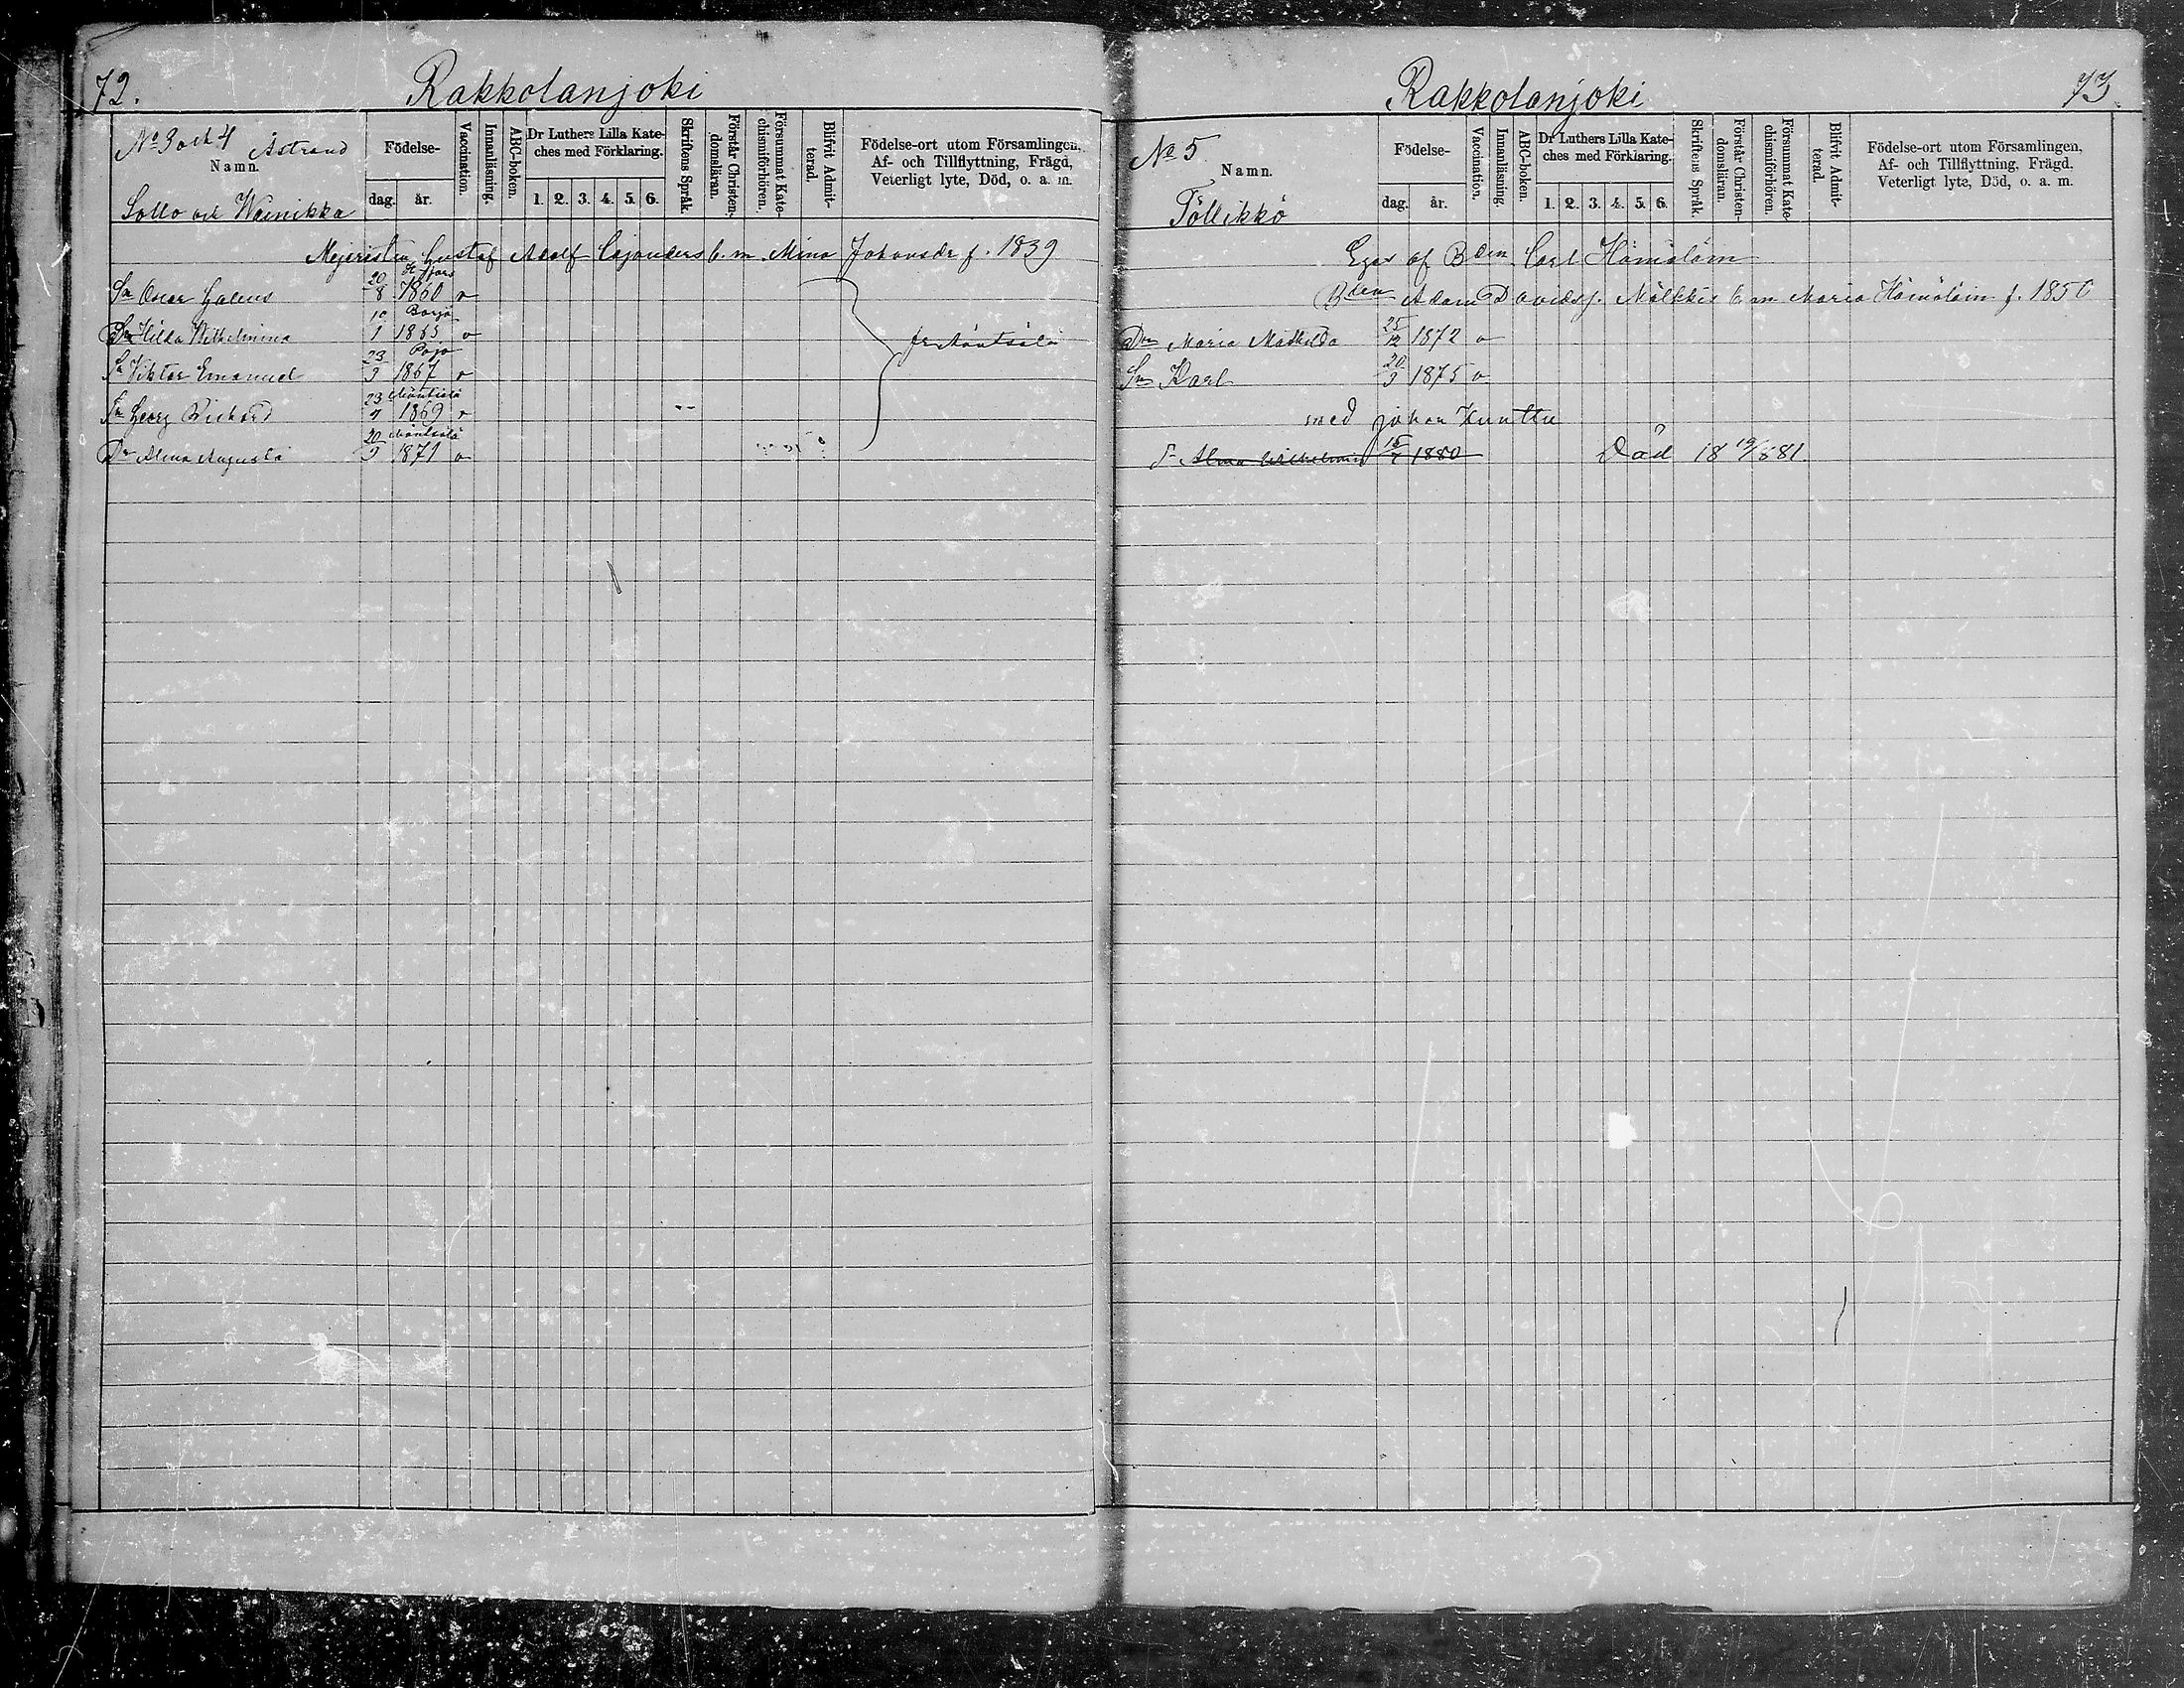 72.
Rakkolanjoki
No 3 och 4 Åstrand
Namn.
Sollo och Wainikka
Födelse-
dag. år.
Vaccination.
Innanläsning.
ABC-boken.
Dr Luthers Lilla Kate-
ches med Förklaring.
1. 2. 3. 4. 5. 6.
Skriftens Språk.
Förstår Christen-
domsläran.
Försummat Kate-
chismiförhören.
Blifvit Admit-
terad.
Födelse-ort utom Församlingen,
Af- och Tillflyttning, Frägd,
Veterligt lyte, Död, o. a. m.
Mejeristen Gustaf Adolf Cajanders b. m. Mina Johansdr f. 1839
H:fors
Sn Oscar 20/8 1860 v
Borgå
Dr Hilda Wilhelmina 10/1 1865 v
Pojo
Sn Viktor Emanuel 23/3 1867 v
fr Mäntsälä
Mäntsälä
Sn Georg Richard 23/7 1869 v
Mäntsälä
Dr Alma Augusta 20/9 1871 v
Rakkolanjoki
73.
No 5
Namn.
Töllikkö
Födelse-
dag. år.
Vaccination.
Innanläsning.
ABC-boken.
Dr Luthers Lilla Kate-
ches med Förklaring.
1. 2. 3. 4. 5. 6.
Skriftens Språk.
Förstår Christen-
domsläran.
Försummat Kate-
chismiförhören.
Blifvit Admit-
terad.
Födelse-ort utom Församlingen,
Af- och Tillflyttning, Frägd,
Veterligt lyte, Död, o. a. m.
Eges af Bden Carl Hämäläin
Bden Adam Davidsf. Mälkkis b m Maria Hämäläin f. 1850
Drn Maria Mathilda 25/12 1872 v
Sn Karl 20/9 1875 v
med Johan Hunttu
d. Alma Wilhelmin 15/7 1880 Död 18 19/8 81